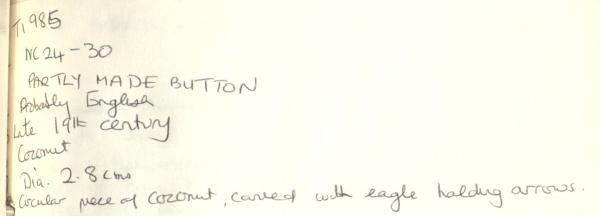 T1985
NC 24-30
PARTLY MADE BUTTON
Probably English
Late 19th century
Coconut
Dia. 2.8 cms
Circular piece of coconut, carved with eagle holding arrows.